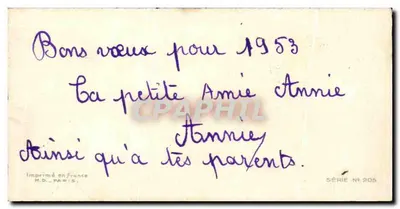 Bons vœux pour 1953
Ta petite Amie Annie
Annie
Ainsi qu'a tes parents.
CPAPHIL
Imprimé en France
M.D. - PARIS.
SÉRIE Nº 305